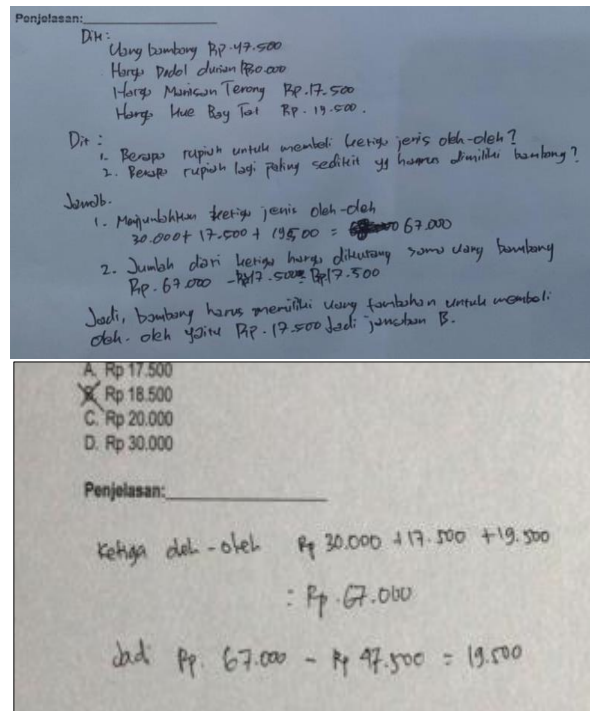 Penjelasan:
Dit:
Uang bambang Rp.47.500
Harga Dodol durian Rp30.000
Harga Manisan Terong Rp.17.500
Harga Kue Bay Tat Rp. 19.500.
Dit :
1. Berapa rupiah untuk membeli ketiga jenis oleh-oleh?
2. Berapa rupiah lagi paling sedikit yg harus dimiliki bambang?
Jawab.
1. Menjumlahkan ketiga jenis oleh-oleh
30.000 + 17.500 + 19.500 = 67.000
2. Jumlah dari ketiga harga dikurang sama uang bambang
Rp. 67.000 - Rp17.500 = Rp17.500
Jadi, bambang harus memiliki uang tambahan untuk membeli
oleh. oleh yaitu Rp. 17.500 Jadi jawaban B.
A. Rp 17.500
B. Rp 18.500
C. Rp 20.000
D. Rp 30.000
Penjelasan:
Ketiga oleh-oleh Rp 30.000 + 17.500 + 19.500
: Rp.67.000
Jadi Rp. 67.000 - Rp 47.500 = 19.500